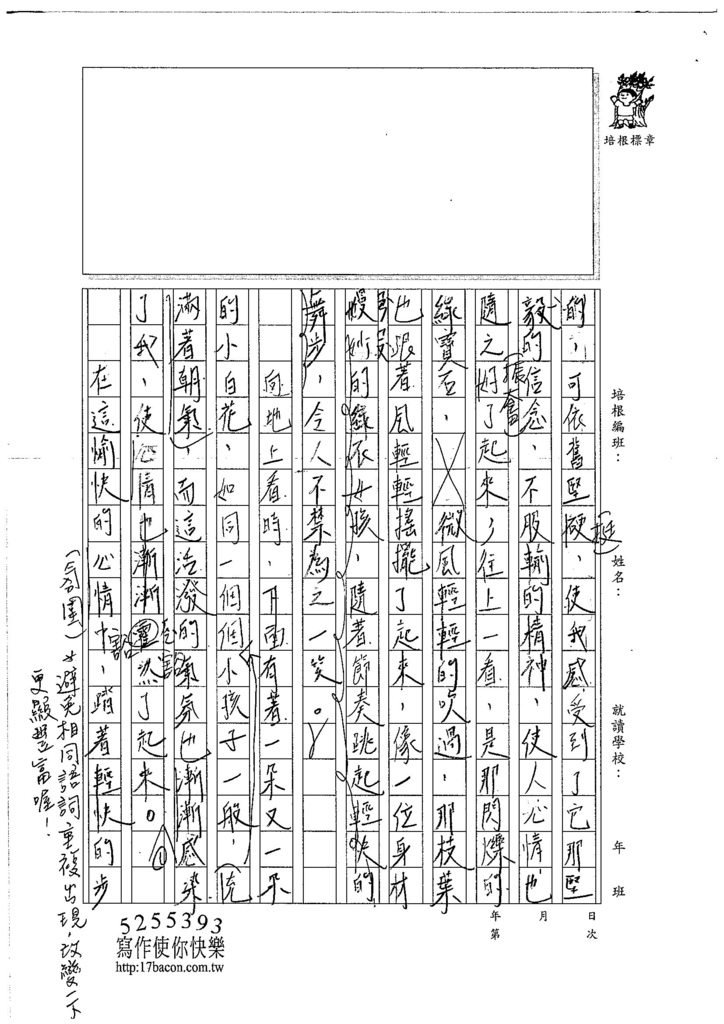 的，可依舊堅硬，使我感受到了它那堅
毅的信念，不服輸的精神，使人心情也
隨之好了起來，往上一看，是那閃爍的
綠寶石，微風輕輕的吹過，那枝葉
也跟著風輕輕搖擺了起來，像一位身材
嫚妙的綠衣女孩，隨著節奏跳起輕快的
舞步，令人不禁為之一笑。
向地上看時，下面有著一朵又一朵
的小白花，如同一個個小孩子一般，充
滿著朝氣，而這活潑的氣氛也漸漸感染
了我，使心情也漸漸然了起來。
在這愉快的心情中，踏著輕快的步
挺
振奮
身段
豁
(氛圍)
避免相同語詞重複出現，改變一下
更顯豐富喔！
培根標章
培根編班：
姓名：
就讀學校：
年 班
年 月 日
第 次
5255393
寫作使你快樂
http:17bacon.com.tw